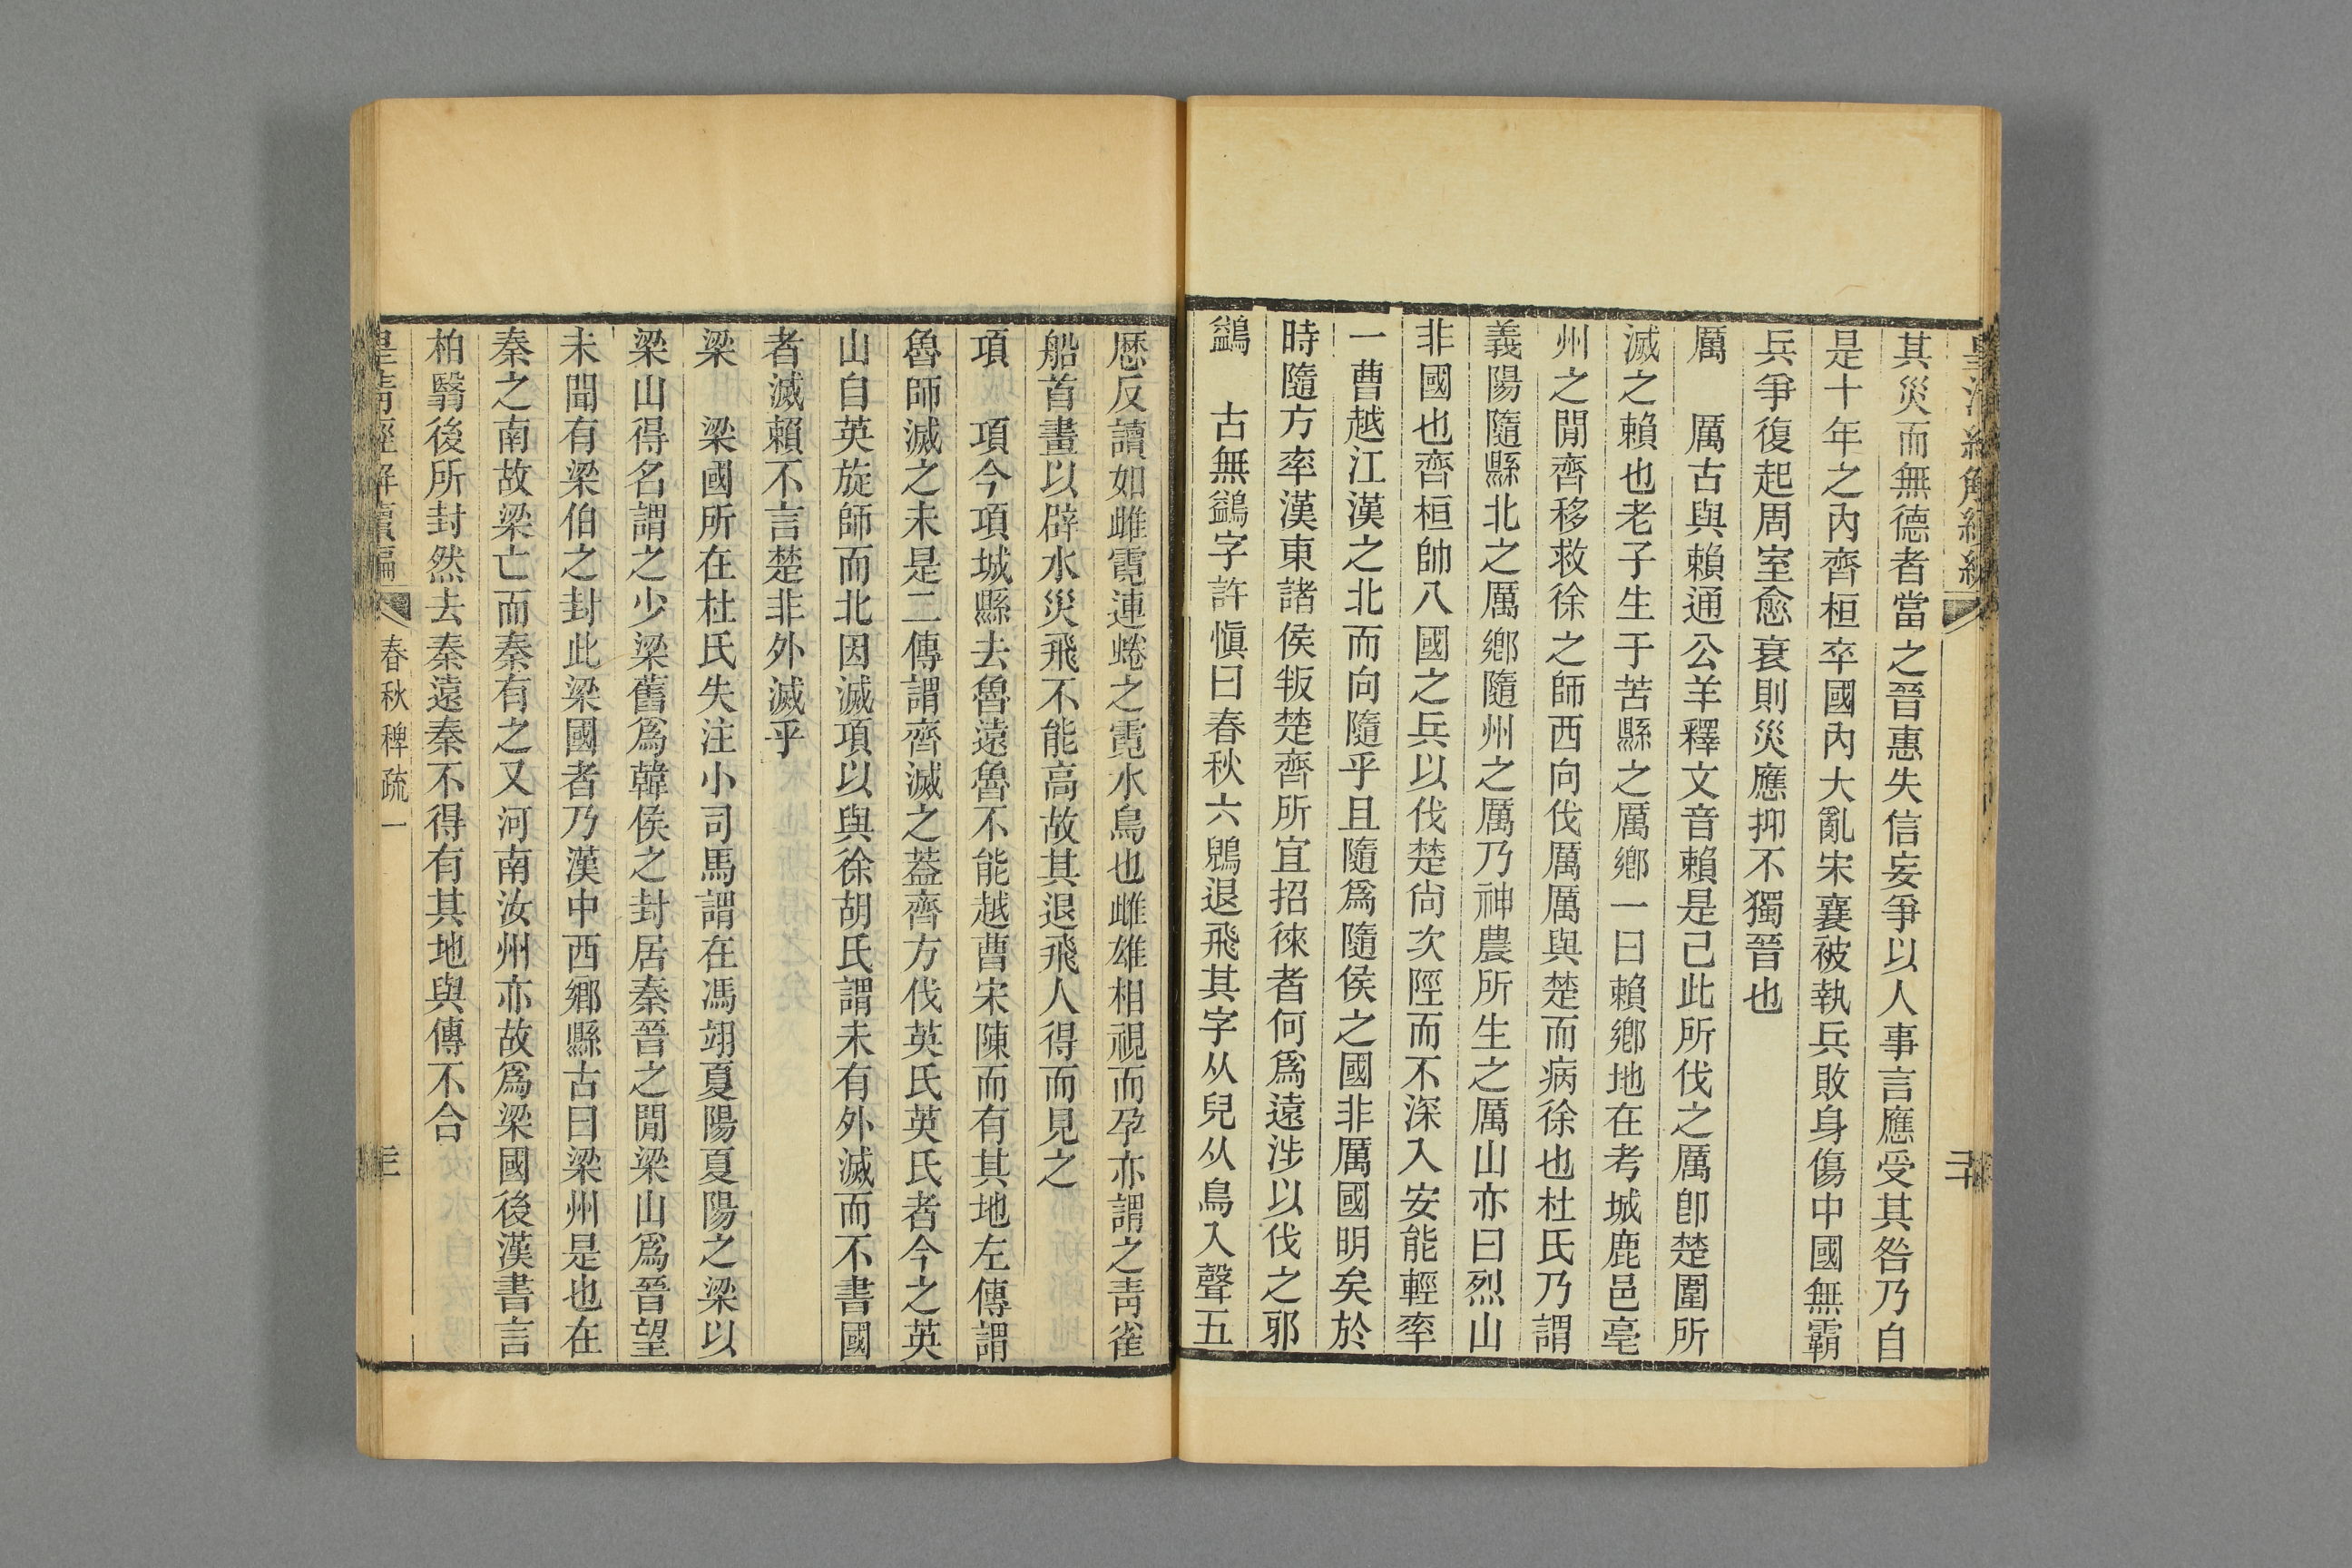 其災而無德者當之晉惠失信妄爭以人事言應受其咎乃自
是十年之內齊桓卒國內大亂宋襄被執兵敗身傷中國無霸
兵爭復起周室愈衰則災應抑不獨晉也
厲　厲古與賴通公羊釋文音賴是己此所伐之厲卽楚圍所
滅之賴也老子生于苦縣之厲鄉一曰賴鄉地在考城鹿邑亳
州之閒齊移救徐之師西向伐厲厲與楚而病徐也杜氏乃謂
義陽隨縣北之厲鄉隨州之厲乃神農所生之厲山亦曰烈山
非國也齊桓帥八國之兵以伐楚尙次陘而不深入安能輕率
一曹越江漢之北而向隨乎且隨爲隨侯之國非厲國明矣於
時隨方率漢東諸侯叛楚齊所宜招徠者何爲遠涉以伐之邪
鷁　古無鷁字許愼曰春秋六鶂退飛其字从兒从鳥入聲五
歷反讀如雌霓連蜷之霓水鳥也雌雄相視而孕亦謂之靑雀
船首畫以辟水災飛不能高故其退飛人得而見之
項　項今項城縣去魯遠魯不能越曹宋陳而有其地左傳謂
魯師滅之未是二傳謂齊滅之葢齊方伐英氏英氏者今之英
山自英旋師而北因滅項以與徐胡氏謂未有外滅而不書國
者滅賴不言楚非外滅乎
梁　梁國所在杜氏失注小司馬謂在馮翊夏陽夏陽之梁以
梁山得名謂之少梁舊爲韓侯之封居秦晉之閒梁山爲晉望
未聞有梁伯之封此梁國者乃漢中西鄉縣古曰梁州是也在
秦之南故梁亡而秦有之又河南汝州亦故爲梁國後漢書言
柏翳後所封然去秦遠秦不得有其地與傳不合
皇淸經解續編　春秋稗疏一